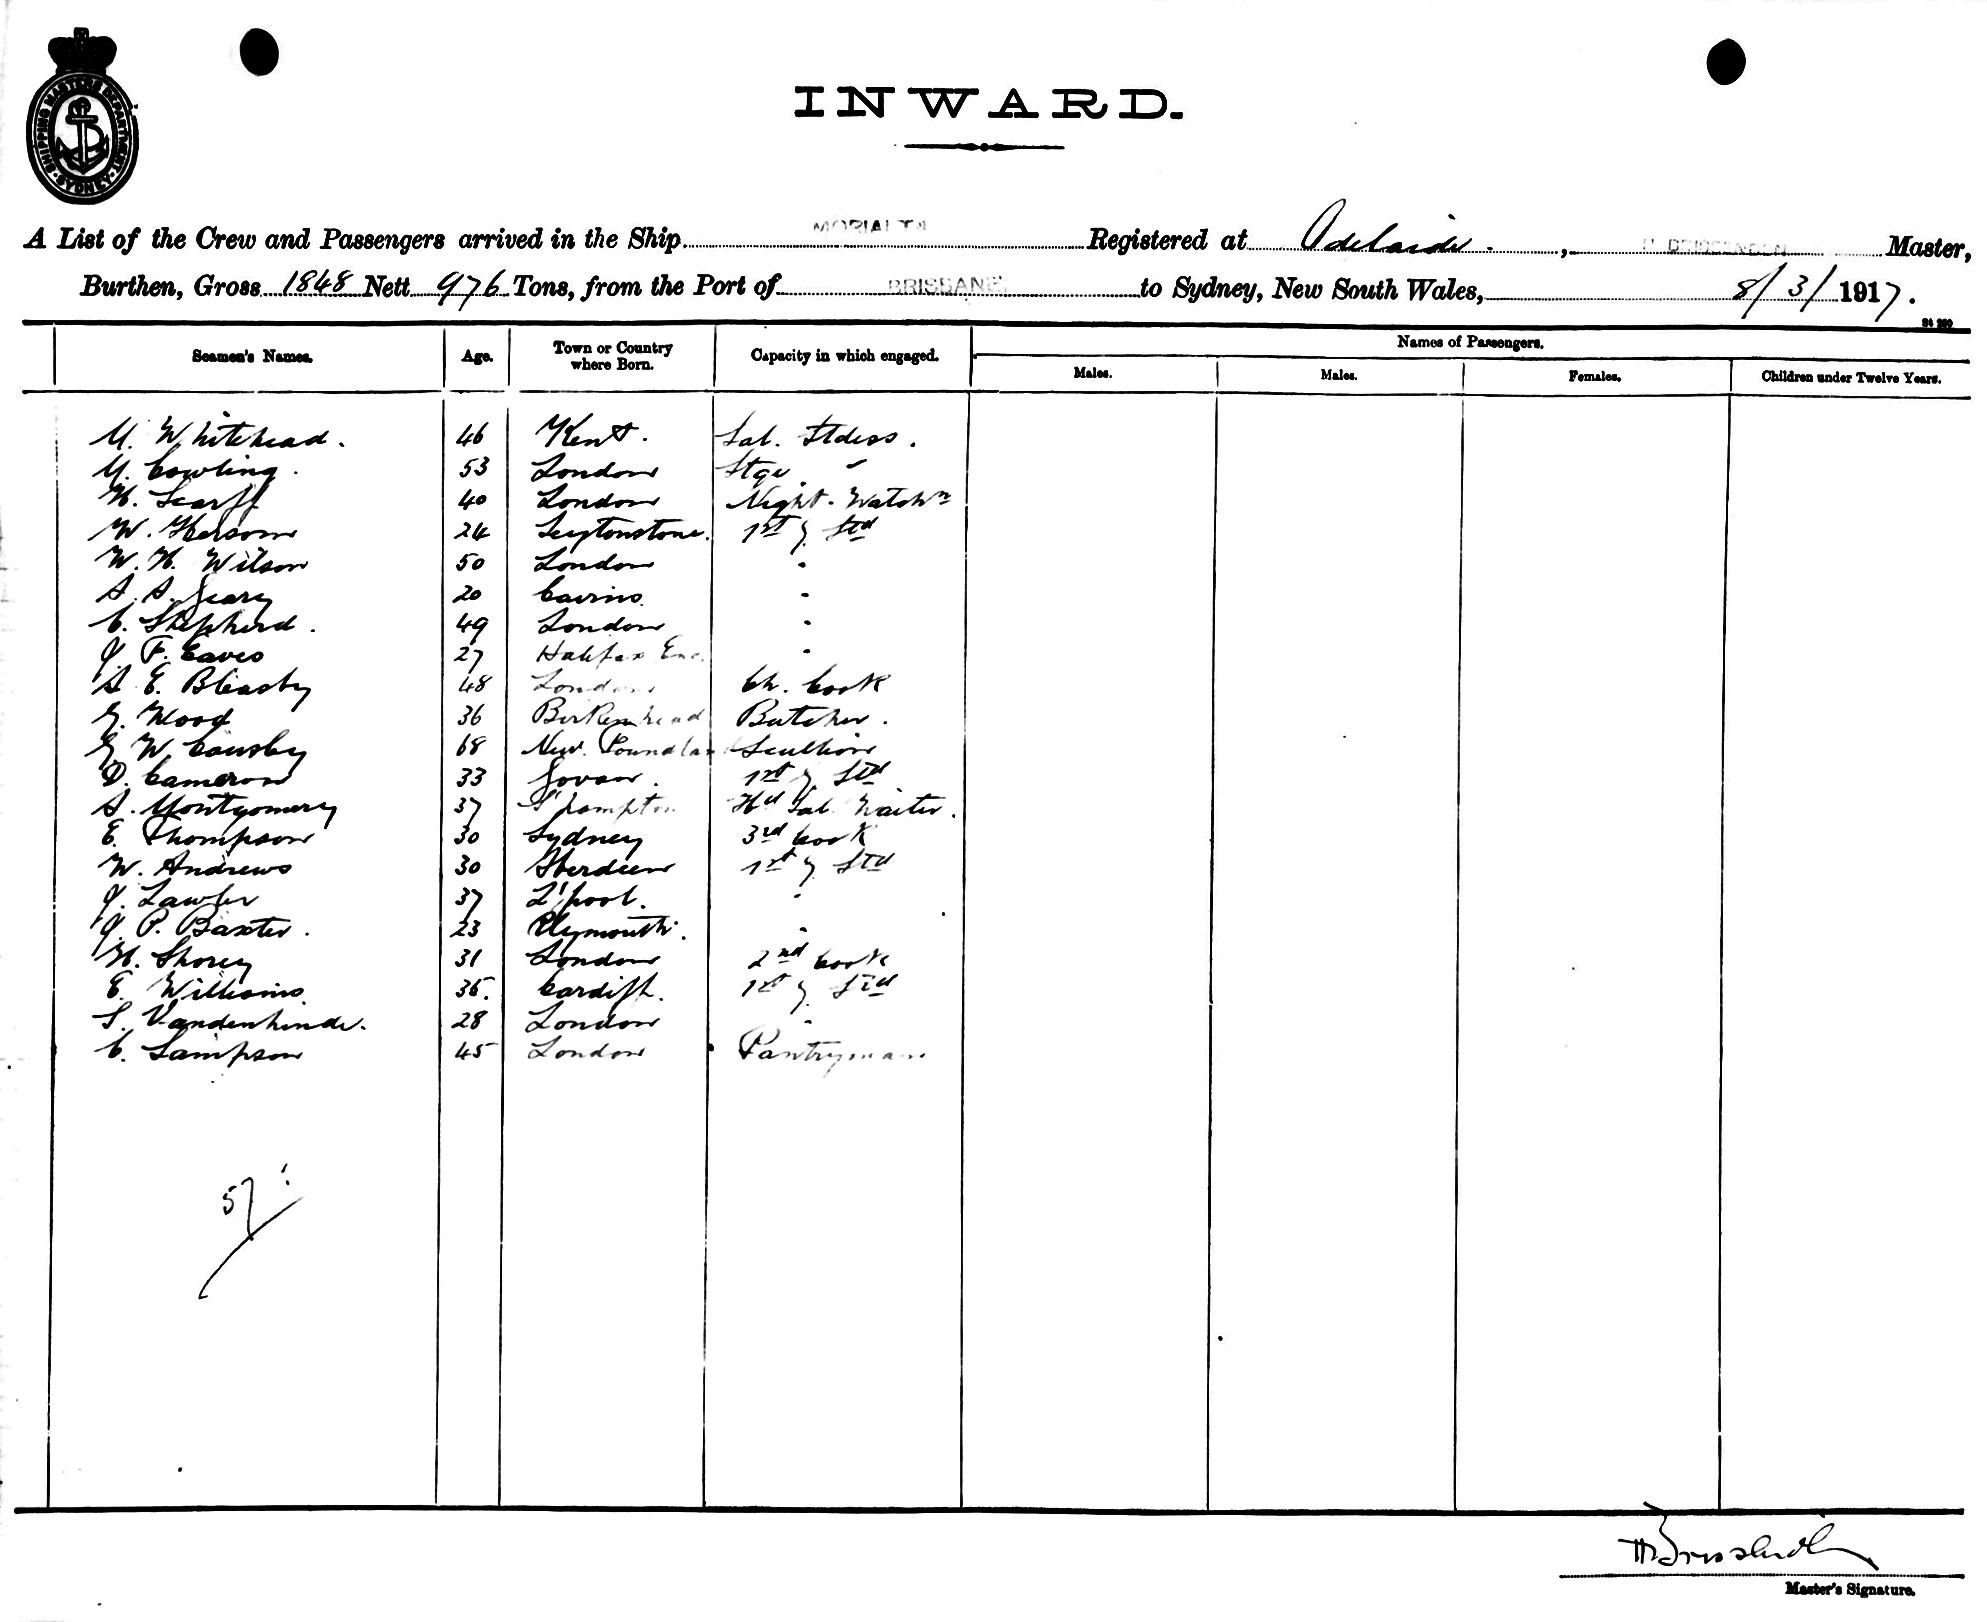 SHIPPING MASTERS DEPARTMENT · SYDNEY ·
INWARD.
A List of the Crew and Passengers arrived in the Ship MORIALTA Registered at Adelaide. , Master,
Burthen, Gross 1848 Nett 976 Tons, from the Port of BRISBANE to Sydney, New South Wales, 8/3/1917.
Seamen's Names. Age. Town or Country where Born. Capacity in which engaged. Names of Passengers.
Males. Males. Females. Children under Twelve Years.
M. Whitehead. 46 Kent. Sal. Stdess.
M. Cowling. 53 London Stge "
H. Scarff 40 London Night-Watchn
W. Hersom 24 Leytonstone. 1st G. Std
W. H. Wilson 50 London "
A. A. Geary 20 Cairns. "
C. Shepherd. 49 London "
J. F. Eaves 27 Halifax Eng. "
A E. Bleasby 48 London Ch. Cook
G. Wood 36 Birkenhead Butcher.
G W. Cousby 68 New Foundland Scullion
D. Cameron 33 Govan. 1st G Std
A. Montgomery 37 S'hampton Hd Sal. Waiter.
E. Thompson 30 Sydney 3rd Cook
W. Andrews 30 Aberdeen 1st G. Std
J. Lawler 37 L'pool. "
J. P. Baxter. 23 Plymouth. "
H. Shorey 31 London 2nd Cook
E. Williams 35. Cardiff. 1st G. Std
S. Vandenhende. 28 London "
C. Sampson 45 London Pantryman
57
Master's Signature.